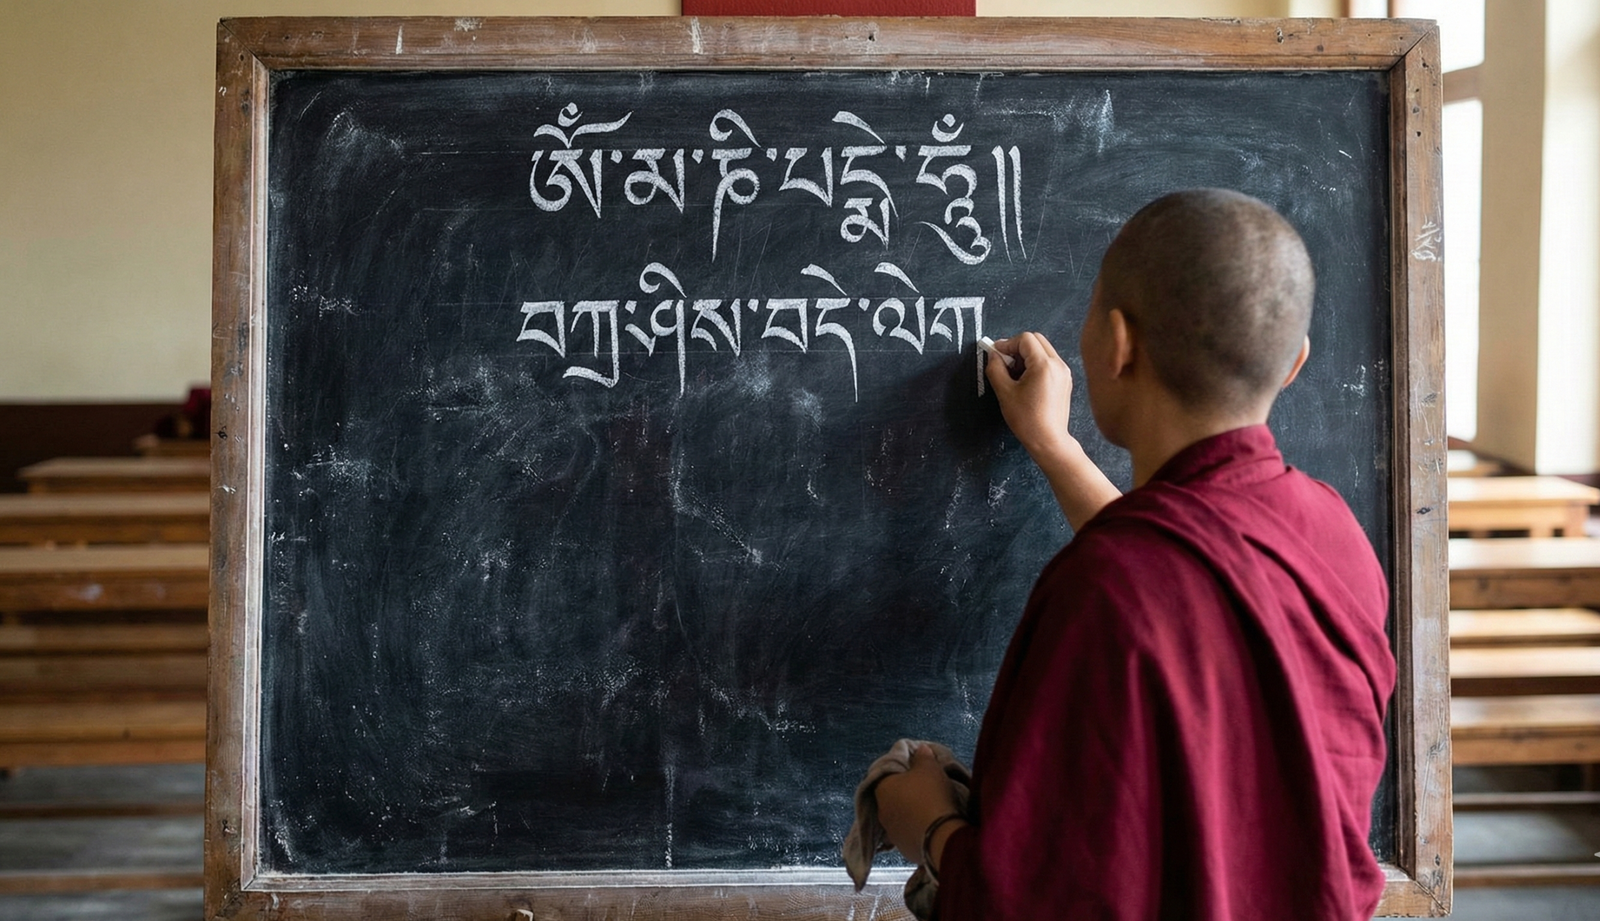 ཨོཾ་མ་ཎི་པདྨེ་ཧཱུྃ༎
བཀྲ་ཤིས་བདེ་ལེག